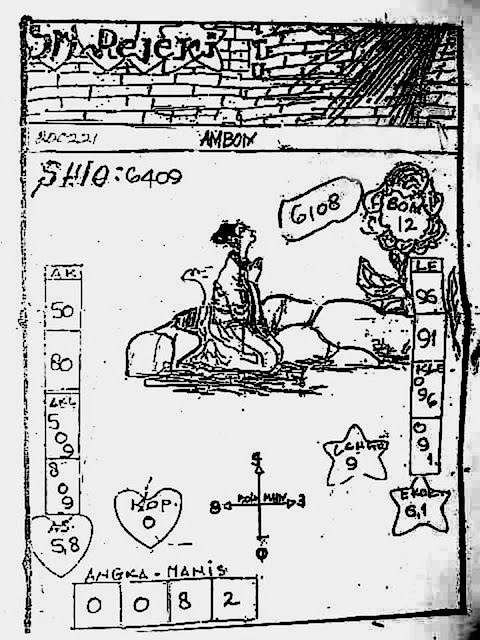 Sri Rejeki
AMBOIX
SHIO: 6409
6108
BOM
12
AK
50
80
AKL
5
0
9
8
0
9
AS
5,8
KOP.
0
LE
96
91
KLE
0
96
0
9
1.
9
EKOR
6,1
8
3
0
ANGKA-MANIS
0 0 8 2